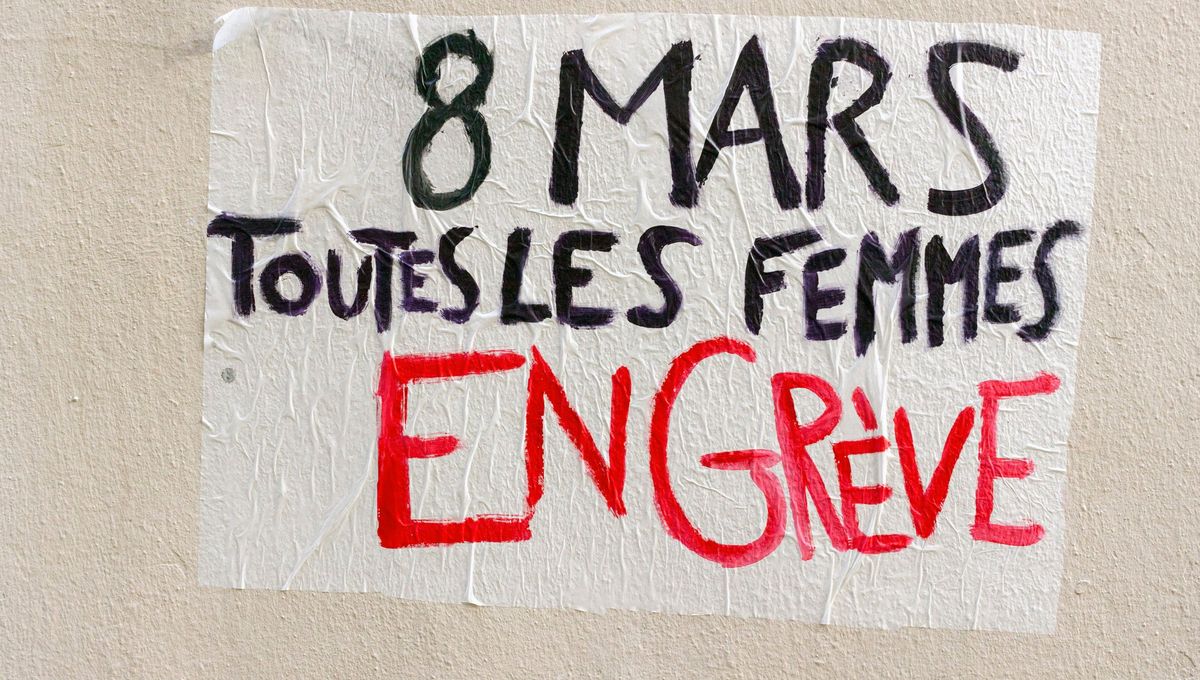 8 MARS
TOUTES LES FEMMES
EN GRÈVE